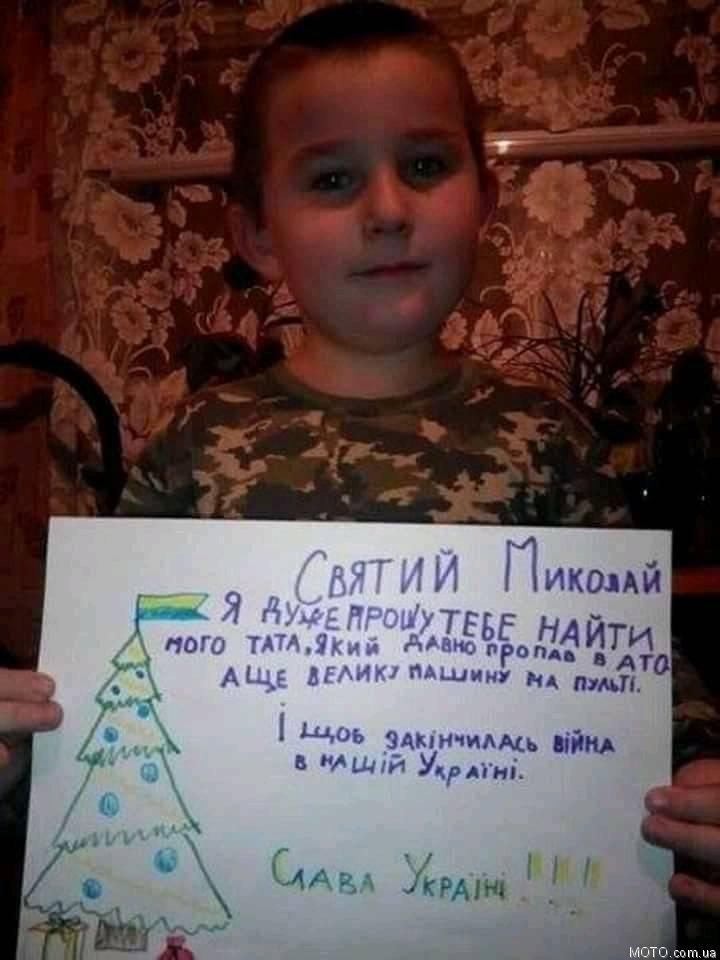 Святий Миколай
Я дуже прошу тебе найти
мого тата, який давно пропав в АТО
а ще велику машину на пульті.
І щоб закінчилась війна
в нашій Україні.
Слава Україні!!!!
MOTO.com.ua